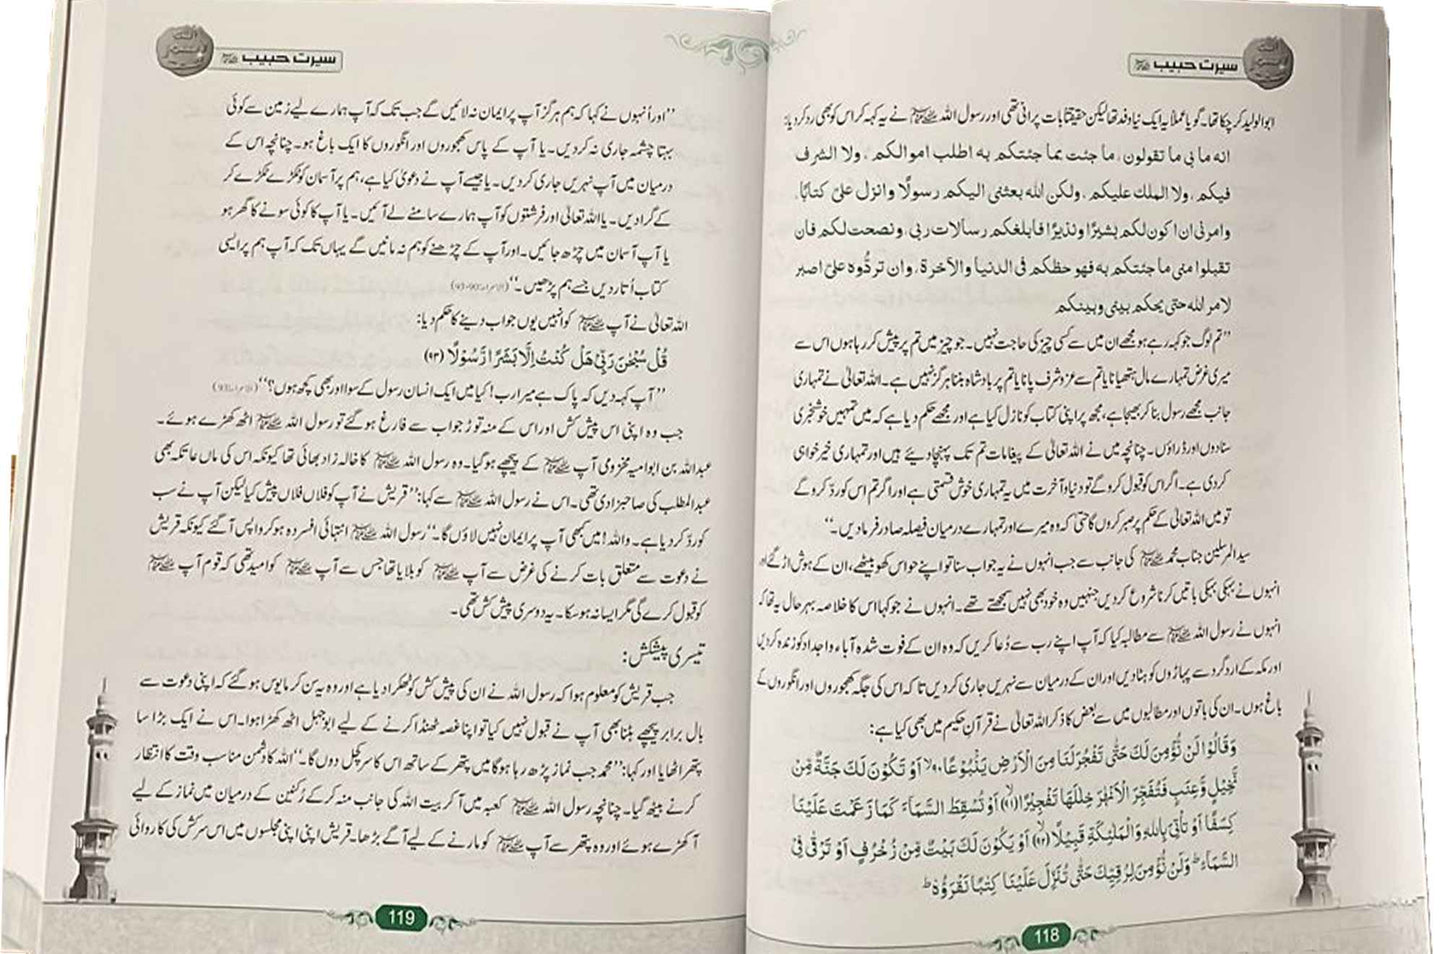 سیرت حبیب ﷺ
ابوالولید کر چکا تھا۔ گویا عملاً یہ ایک نیا وفد تھا لیکن حقیقتًا بات پرانی تھی اور رسول اللہ ﷺ نے یہ کہہ کر اس کو بھی رد کر دیا:
انه ما بی ما تقولون، ما جئت بما جئتکم به اطلب اموالکم، ولا الشرف
فیکم، ولا الملك علیکم، ولکن الله بعثنی الیکم رسولًا وانزل علیّ کتابًا،
وامرنی ان اکون لکم بشیرًا ونذیرًا فابلغکم رسالات ربی، ونصحت لکم فان
تقبلوا منی ما جئتکم به فهو حظکم فی الدنیا والآخرة، وان تردُّوه علیّ اصبر
لامر الله حتی یحکم بینی وبینکم
”تم لوگ جو کہہ رہے ہو مجھے ان میں سے کسی چیز کی حاجت نہیں۔ جو چیز میں تم پر پیش کر رہا ہوں اس سے
میری غرض تمہارے مال ہتھیانا یا تم سے عز و شرف پانا یا تم پر بادشاہ بننا ہرگز نہیں ہے۔ اللہ تعالیٰ نے تمہاری
جانب مجھے رسول بنا کر بھیجا ہے، مجھ پر اپنی کتاب کو نازل کیا ہے اور مجھے حکم دیا ہے کہ میں تمہیں خوشخبری
سنادوں اور ڈراؤں۔ چنانچہ میں نے اللہ تعالیٰ کے پیغامات تم تک پہنچا دیئے ہیں اور تمہاری خیر خواہی
کر دی ہے۔ اگر اس کو قبول کرو گے تو دنیا و آخرت میں یہ تمہاری خوش قسمتی ہے اور اگر تم اس کو رد کرو گے
تو میں اللہ تعالیٰ کے حکم پر صبر کروں گا حتیٰ کہ وہ میرے اور تمہارے درمیان فیصلہ صادر فرما دیں۔“
سید المرسلین جناب محمد ﷺ کی جانب سے جب انہوں نے یہ جواب سنا تو اپنے حواس کھو بیٹھے، ان کے ہوش اڑ گئے اور
انہوں نے بہکی بہکی باتیں کرنا شروع کر دیں جنہیں وہ خود بھی نہیں سمجھتے تھے۔ انہوں نے جو کہا اس کا خلاصہ بہرحال یہ تھا کہ
انہوں نے رسول اللہ ﷺ سے مطالبہ کیا کہ آپ اپنے رب سے دُعا کریں کہ وہ ان کے فوت شدہ آباء واجداد کو زندہ کر دیں
اور مکہ کے ارد گرد سے پہاڑوں کو ہٹا دیں اور ان کے درمیان سے نہریں جاری کر دیں تا کہ اس کی جگہ کھجوروں اور انگوروں کے
باغ ہوں۔ ان کی باتوں اور مطالبوں میں سے بعض کا ذکر اللہ تعالیٰ نے قرآنِ حکیم میں بھی کیا ہے:
وَقَالُوْا لَنْ نُّؤْمِنَ لَكَ حَتّٰی تَفْجُرَ لَنَا مِنَ الْاَرْضِ یَنْۢبُوْعًا ﴿۹۰﴾ اَوْ تَكُوْنَ لَكَ جَنَّةٌ مِّنْ
نَّخِیْلٍ وَّعِنَبٍ فَتُفَجِّرَ الْاَنْهٰرَ خِلٰلَهَا تَفْجِیْرًا ﴿۹۱﴾ اَوْ تُسْقِطَ السَّمَآءَ كَمَا زَعَمْتَ عَلَیْنَا
كِسَفًا اَوْ تَاْتِیَ بِاللّٰهِ وَالْمَلٰٓئِكَةِ قَبِیْلًا ﴿۹۲﴾ اَوْ یَكُوْنَ لَكَ بَیْتٌ مِّنْ زُخْرُفٍ اَوْ تَرْقٰی فِی
السَّمَآءِ ؕ وَلَنْ نُّؤْمِنَ لِرُقِیِّكَ حَتّٰی تُنَزِّلَ عَلَیْنَا كِتٰبًا نَّقْرَؤُهٗ ؕ
118
سیرت حبیب ﷺ
”اور اُنہوں نے کہا کہ ہم ہرگز آپ پر ایمان نہ لائیں گے جب تک کہ آپ ہمارے لیے زمین سے کوئی
بہتا چشمہ جاری نہ کر دیں۔ یا آپ کے پاس کھجوروں اور انگوروں کا ایک باغ ہو۔ چنانچہ اس کے
درمیان میں آپ نہریں جاری کر دیں۔ یا جیسے آپ نے دعویٰ کیا ہے، ہم پر آسمان کو ٹکڑے ٹکڑے کر
کے گرا دیں۔ یا اللہ تعالیٰ اور فرشتوں کو آپ ہمارے سامنے لے آئیں۔ یا آپ کا کوئی سونے کا گھر ہو
یا آپ آسمان میں چڑھ جائیں۔ اور آپ کے چڑھنے کو ہم نہ مانیں گے یہاں تک کہ آپ ہم پر ایسی
کتاب اُتار دیں جسے ہم پڑھیں۔“ (الاسراء:90-93)
اللہ تعالیٰ نے آپ ﷺ کو انہیں یوں جواب دینے کا حکم دیا:
قُلْ سُبْحٰنَ رَبِّیْ هَلْ كُنْتُ اِلَّا بَشَرًا رَّسُوْلًا ﴿۹۳﴾
”آپ کہہ دیں کہ پاک ہے میرا رب! کیا میں ایک انسان رسول کے سوا اور بھی کچھ ہوں؟“ (الاسراء:93)
جب وہ اپنی اس پیش کش اور اس کے منہ توڑ جواب سے فارغ ہو گئے تو رسول اللہ ﷺ اٹھ کھڑے ہوئے۔
عبداللہ بن ابو امیہ مخزومی آپ ﷺ کے پیچھے ہو گیا۔ وہ رسول اللہ ﷺ کا خالہ زاد بھائی تھا کیونکہ اس کی ماں عاتکہ بھی
عبدالمطلب کی صاحبزادی تھی۔ اس نے رسول اللہ ﷺ سے کہا: ”قریش نے آپ کو فلاں فلاں پیش کیا لیکن آپ نے سب
کو رد کر دیا ہے۔ واللہ! میں کبھی آپ پر ایمان نہیں لاؤں گا۔“ رسول اللہ ﷺ انتہائی افسردہ ہو کر واپس آ گئے کیونکہ قریش
نے دعوت سے متعلق بات کرنے کی غرض سے آپ ﷺ کو بلایا تھا جس سے آپ ﷺ کو امید تھی کہ قوم آپ ﷺ
کو قبول کرے گی مگر ایسا نہ ہو سکا۔ یہ دوسری پیش کش تھی۔
تیسری پیشکش:
جب قریش کو معلوم ہوا کہ رسول اللہ نے ان کی پیش کش کو ٹھکرا دیا ہے اور وہ یہ سن کر مایوس ہو گئے کہ اپنی دعوت سے
بال برابر پیچھے ہٹنا بھی آپ نے قبول نہیں کیا تو اپنا غصہ ٹھنڈا کرنے کے لیے ابوجہل اٹھ کھڑا ہوا۔ اس نے ایک بڑا سا
پتھر اٹھایا اور کہا: ”محمد جب نماز پڑھ رہا ہو گا میں پتھر کے ساتھ اس کا سر کچل دوں گا۔“ اللہ کا دشمن مناسب وقت کا انتظار
کرنے بیٹھ گیا۔ چنانچہ رسول اللہ ﷺ کعبہ میں آ کر بیت اللہ کی جانب منہ کر کے رُکنین کے درمیان میں نماز کے لیے
آ کھڑے ہوئے اور وہ پتھر سے آپ ﷺ کو مارنے کے لیے آگے بڑھا۔ قریش اپنی اپنی مجلسوں میں اس سرکش کی کاروائی
119